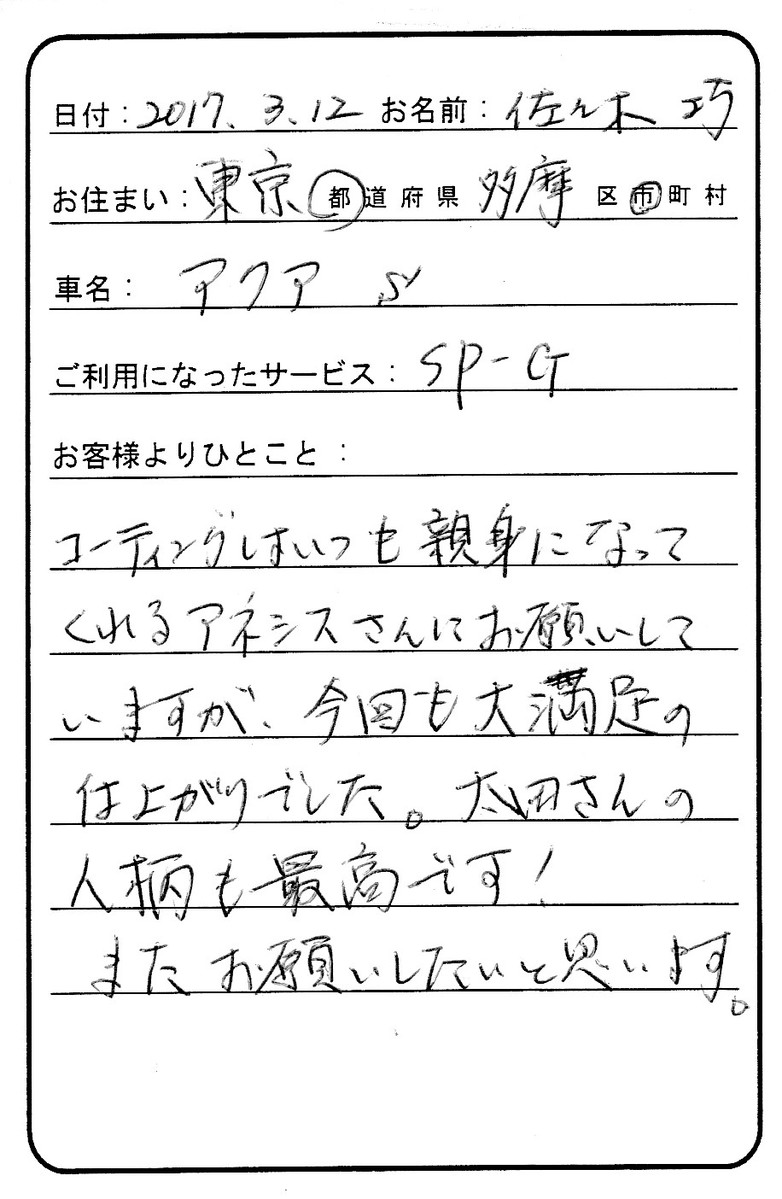 日付：2017. 3. 12 お名前：佐々木 巧
お住まい：東京 都 道 府 県 多摩 区 市 町 村
車名： アクア S
ご利用になったサービス： SP-G
お客様よりひとこと：
コーティングはいつも親身になって
くれるアネシスさんにお願いして
いますが、今回も大満足の
仕上がりでした。太田さんの
人柄も最高です！
またお願いしたいと思います。